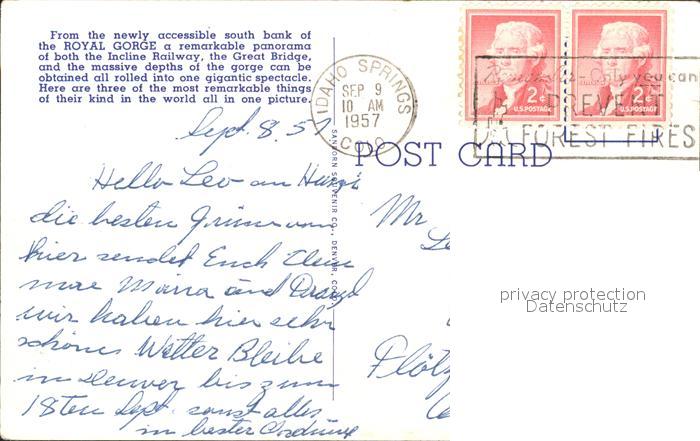 From the newly accessible south bank of
the ROYAL GORGE a remarkable panorama
of both the Incline Railway, the Great Bridge,
and the massive depths of the gorge can be
obtained all rolled into one gigantic spectacle.
Here are three of the most remarkable things
of their kind in the world all in one picture.
IDAHO SPRINGS
SEP 9
10 AM
1957
COLO
2¢
U.S.POSTAGE
2¢
U.S.POSTAGE
Remember- Only you can
PREVENT
FOREST FIRES
POST CARD
SANBORN SOUVENIR CO., DENVER, COLO.
Sept. 8. 57
Hello Leo
die besten Grüsse von
hier sendet Euch
und
wir haben hier sehr
schönes Wetter Bleibe
in Denver bis zum
18ten Sept. sonst alles
in bester Ordnung
Mr
privacy protection
Datenschutz